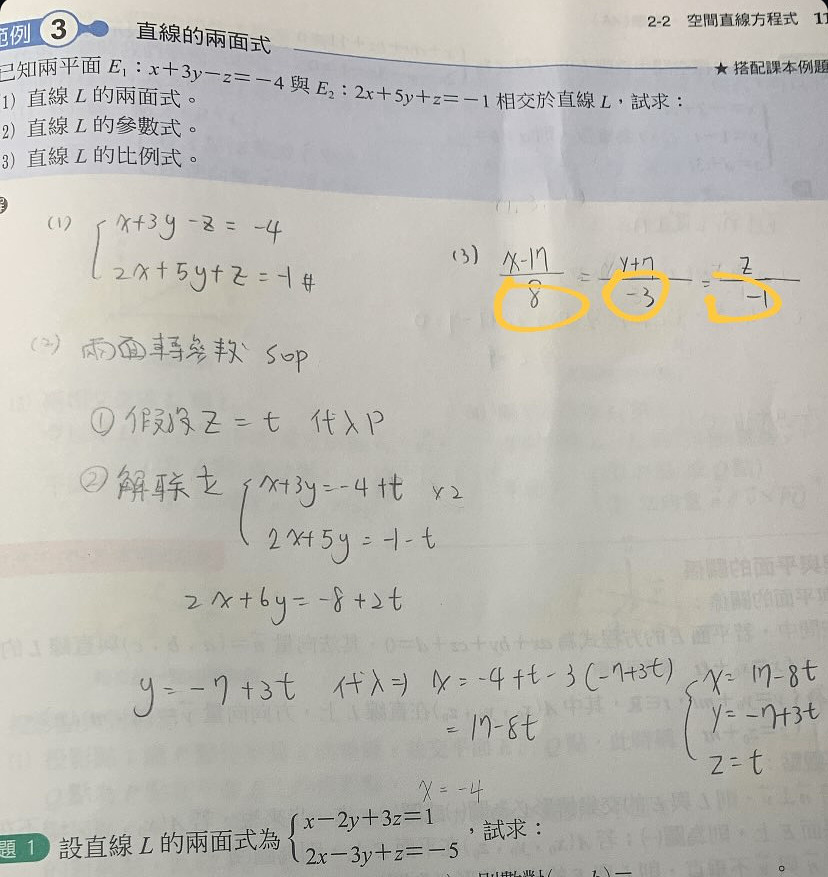 範例 3 直線的兩面式
2-2 空間直線方程式 11
★搭配課本例題
已知兩平面 E₁：x+3y−z=−4 與 E₂：2x+5y+z=−1 相交於直線 L，試求：
1) 直線 L 的兩面式。
2) 直線 L 的參數式。
3) 直線 L 的比例式。
(1) { x+3y-z=-4
2x+5y+z=-1 #
(3) x-17/8 = y+7/-3 = z/-1
(2) 兩面轉參數 sop
① 假設 z=t 代入
② 解聯立 { x+3y=-4+t ×2
2x+5y=-1-t
2x+6y=-8+2t
y=-7+3t 代入⇒ x=-4+t-3(-7+3t)
=17-8t
{ x=17-8t
y=-7+3t
z=t
x=-4
題 1 設直線 L 的兩面式為 { x−2y+3z=1
2x−3y+z=−5 ，試求：